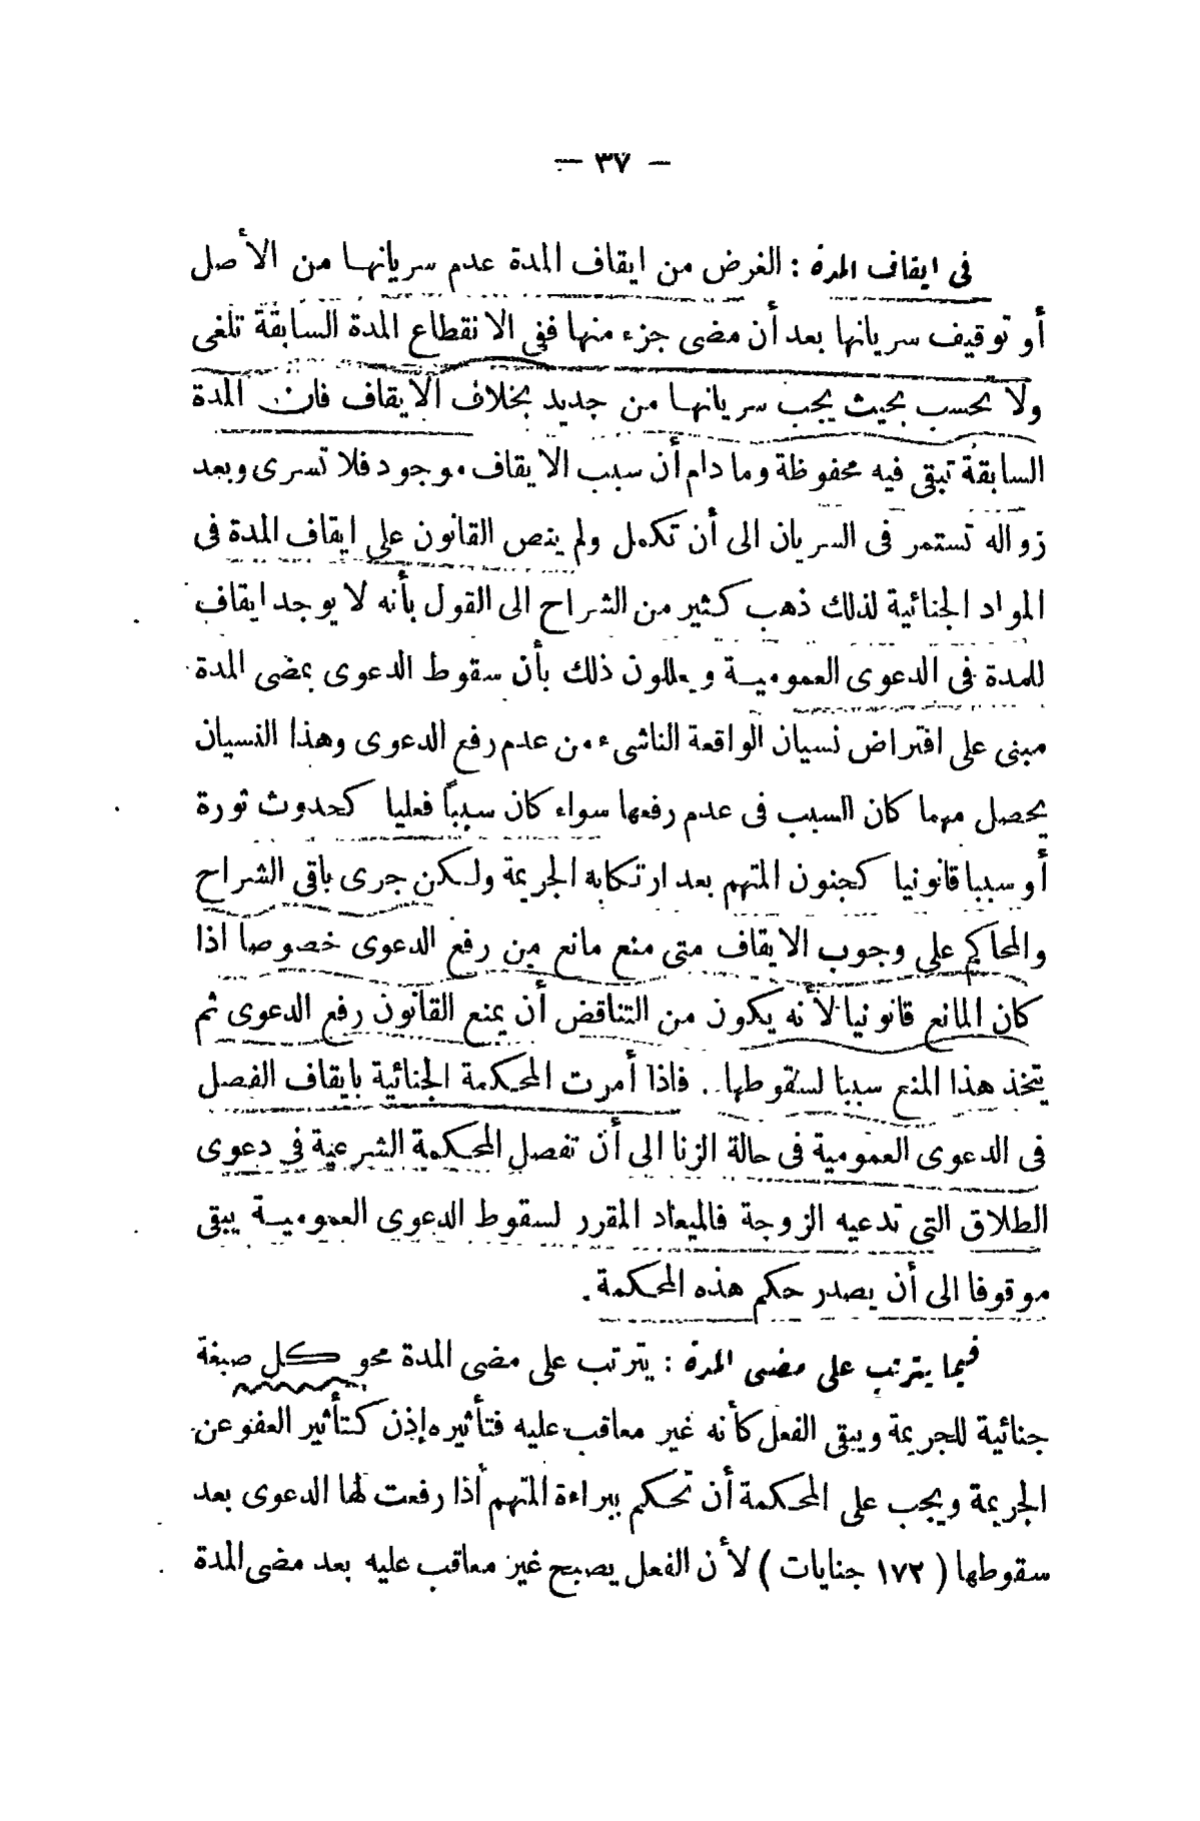 — ٣٧ —
فى ايقاف المدة : الغرض من ايقاف المدة عدم سريانها من الأصل
أو توقيف سريانها بعد أن مضى جزء منها ففى الانقطاع المدة السابقة تلغى
ولا تحسب بحيث يجب سريانها من جديد بخلاف الايقاف فان المدة
السابقة تبقى فيه محفوظة وما دام أن سبب الايقاف موجود فلا تسرى وبعد
زواله تستمر فى السريان الى أن تكمل ولم ينص القانون على ايقاف المدة فى
المواد الجنائية لذلك ذهب كثير من الشراح الى القول بأنه لا يوجد ايقاف
للمدة فى الدعوى العمومية ويعللون ذلك بأن سقوط الدعوى بمضى المدة
مبنى على افتراض نسيان الواقعة الناشىء من عدم رفع الدعوى وهذا النسيان
يحصل مهما كان السبب فى عدم رفعها سواء كان سبباً فعليا كحدوث ثورة
أو سببا قانونيا كجنون المتهم بعد ارتكابه الجريمة ولكن جرى باقى الشراح
والمحاكم على وجوب الايقاف متى منع مانع من رفع الدعوى خصوصا اذا
كان المانع قانونيا لأنه يكون من التناقض أن يمنع القانون رفع الدعوى ثم
يتخذ هذا المنع سببا لسقوطها . فاذا أمرت المحكمة الجنائية بايقاف الفصل
فى الدعوى العمومية فى حالة الزنا الى أن تفصل المحكمة الشرعية فى دعوى
الطلاق التى تدعيه الزوجة فالميعاد المقرر لسقوط الدعوى العمومية يبقى
موقوفا الى أن يصدر حكم هذه المحكمة .
فيما يترتب على مضى المدة : يترتب على مضى المدة محو كل صبغة
جنائية للجريمة ويبقى الفعل كأنه غير معاقب عليه فتأثيره إذن كتأثير العفو عن
الجريمة ويجب على المحكمة أن تحكم ببراءة المتهم أذا رفعت لها الدعوى بعد
سقوطها ( ١٧٢ جنايات ) لأن الفعل يصبح غير معاقب عليه بعد مضى المدة